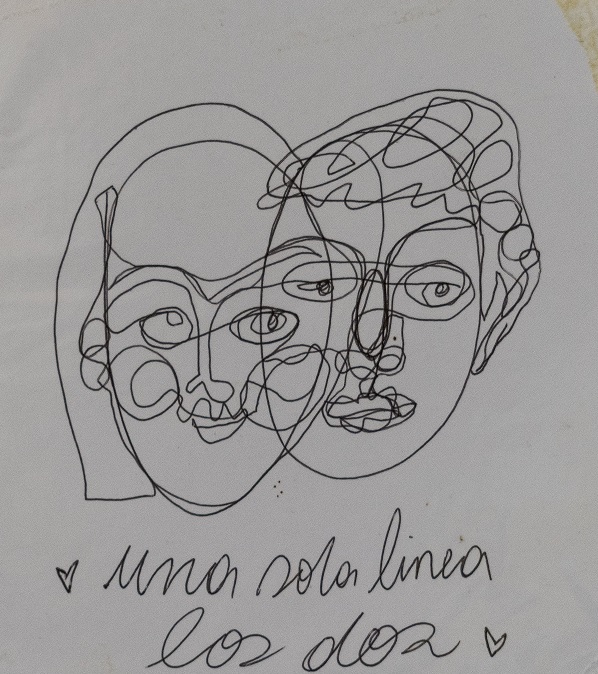 ♥ una sola linea
los dos ♥